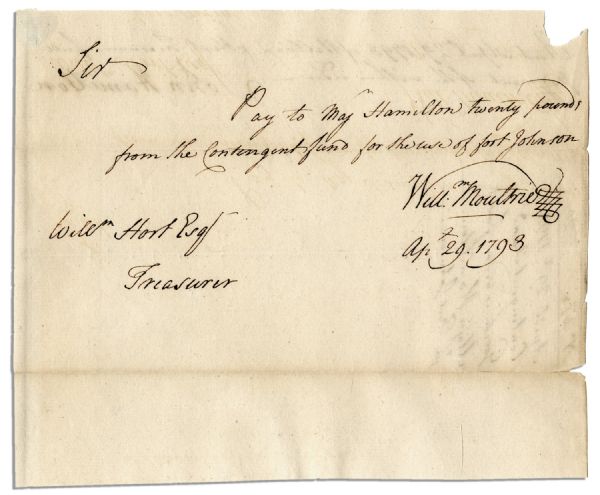 Sir
Pay to Majr Hamilton twenty pounds
from the Contengent fund for the use of fort Johnson
Willm Moultrie
Apl 29. 1793
Willm Hort Esqr
Treasurer